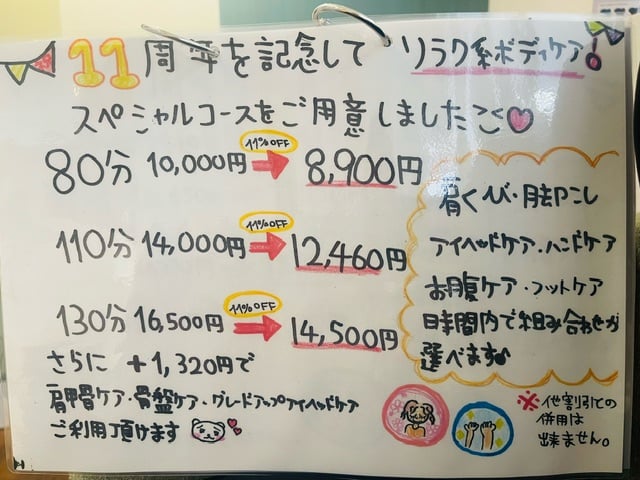 11周年を記念して リラク系ボディケア!
スペシャルコースをご用意しました
80分 10,000円 11%OFF 8,900円
110分 14,000円 11%OFF 12,460円
130分 16,500円 11%OFF 14,500円
肩くび・肩こし
アイヘッドケア・ハンドケア
お腹ケア・フットケア
時間内で組み合わせが
選べます♪
さらに +1,320円で
肩甲骨ケア・骨盤ケア・グレードアップアイヘッドケア
ご利用頂けます
※他割引での
併用は
出来ません。